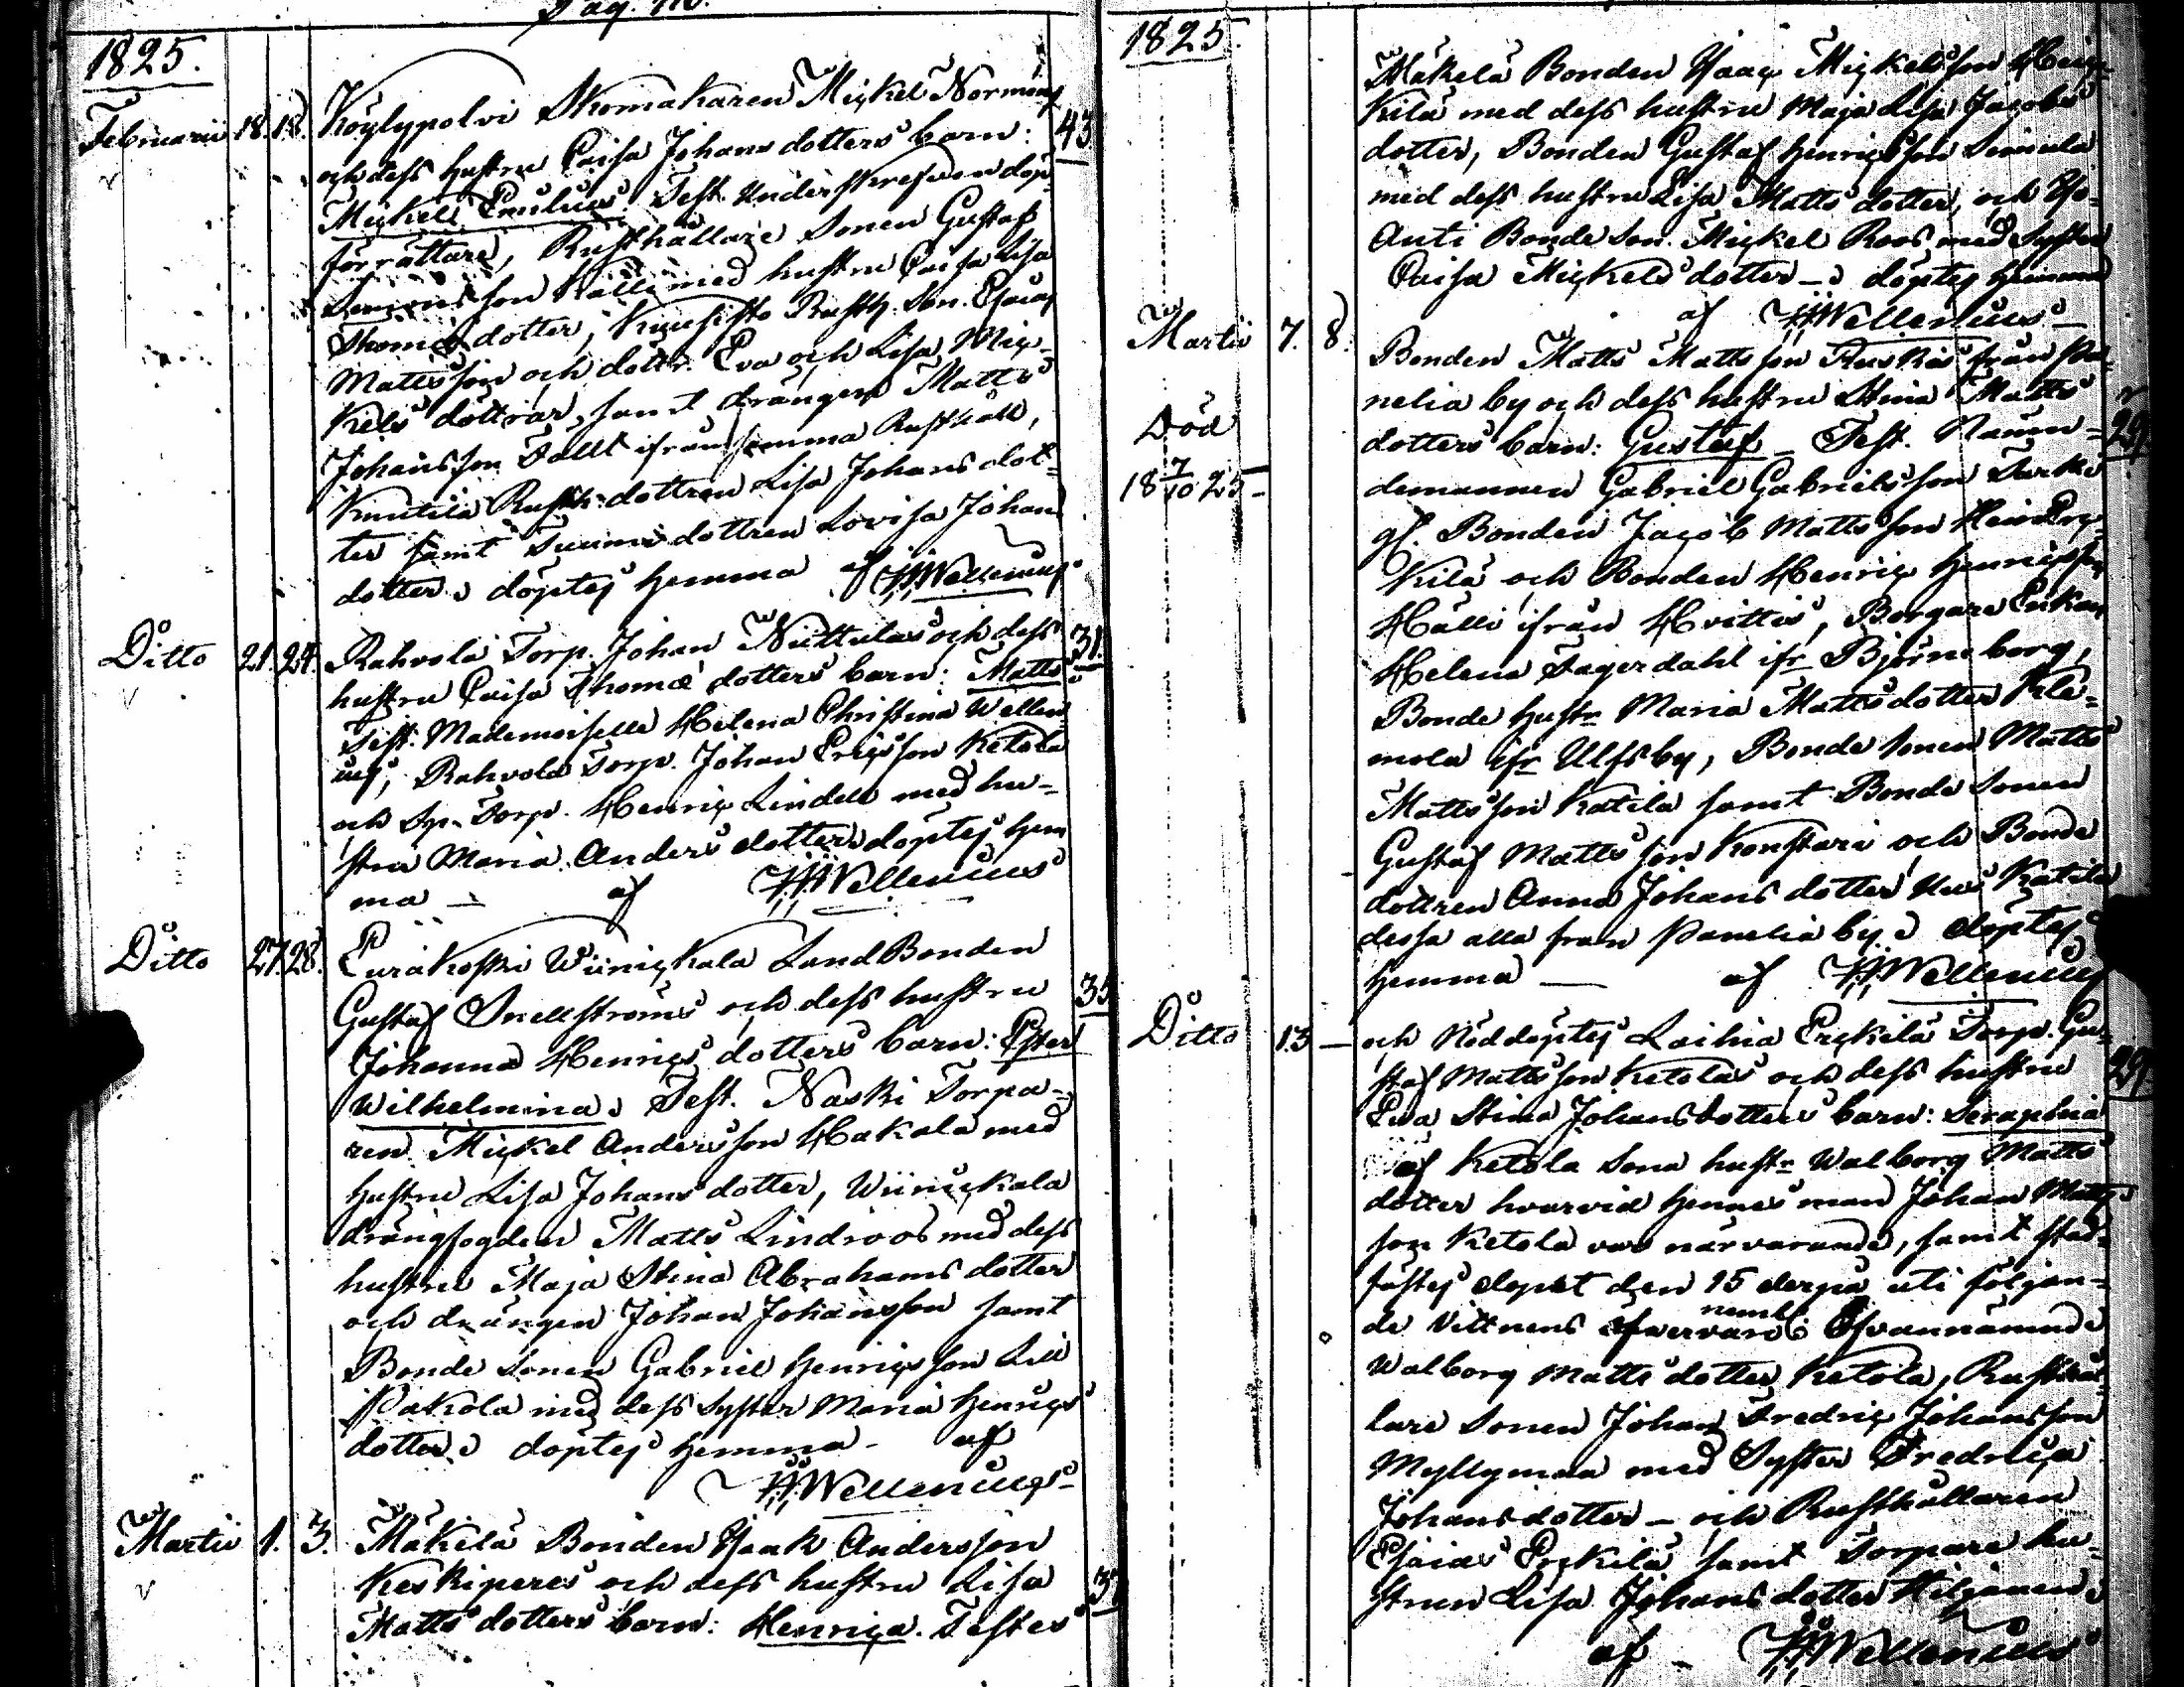 Pag. 110.
1825.
Februarii 18. 18. Köylypolvi Skomakaren Mickel Normens
och dess hustru Caisa Johans dotters barn: 43
Mickel Test. Underskrefven dop
förrättare, Rusthållare Sonen Gustaf
Simonsson Källi med hustru Caisa Lisa
Thomæ dotter, Knuhsto Rusth. Son. Esaias
Mattsson och dottr. Eva och Lisa Mic-
kels döttrar, samt drängen Matts
Johansson Fallt ifrån samma Rusthåll,
Knutila Rusth. dottren Lisa Johans dot-
ter samt Tuumi dottren Lovisa Johans
dotter döptes hemma af HWellenius
Ditto 21. 24. Rahvola Torp. Johan Niittulas och dess 31.
hustru Caisa Thomæ dotters barn: Matts
Test. Mademoiselle Helena Christina Wellen
ius, Rahvola Torp. Johan Ericsson Ketola
och Sp. Torp. Henric Lindell med hu-
stru Maria Anders dotter döptes hem
ma — af HWellenius
Ditto 27. 28. Eurakoski Wiinickala LandBonden
Gustaf Snellströms och dess hustru 35
Johanna Henrics dotters barn: Ester
Wilhelmina Test. Naski Torpa-
ren Mickel Andersson Hakala med
hustru Lisa Johans dotter, Wiinickala
drängfogden Matts Lindroos med dess
hustru Maja Stina Abrahams dotter
och drängen Johan Johansson samt
Bonde Sonen Gabriel Henricsson Lill
Pakola med dess Syster Maria Henrics
dotter döptes hemma - af
HWellenius
Martii 1. 3. Mäkilä Bonden Isaak Andersson
Keskiperes och dess hustru Lisa 37
Matts dotters barn: Henrica. Testes
1825.
Mäkelä Bonden Isaac Mickelsson Heic-
kilä med dess hustru Maja Lisa Jacobs
dotter, Bonden Gustaf Henricsson Simula
med dess hustru Lisa Matts dotter, och
Anti Bonde Son. Mickel Roos med Syster
Caisa Mickels dotter — döptes hemma
af HWellenius —
Martii 7. 8. Bonden Matts Mattsson Ruskis från Pa-
nelia by och dess hustru Stina Matts
Död dotters barn: Gustaf — Test. Nämn- 29
18 7/10 25 — demannen Gabriel Gabrielsson Turki
gl. Bonden Jacob Mattsson
kilä och Bonden Henric Henricsson
Hälli ifrån Hvittis, Borgare Enkan
Helena Fagerdahl ifr Björneborg,
Bonde hustr Maria Mattsdotter Kle-
mola ifr Ulfsby, Bonde Sonen Matts
Mattsson Katila samt Bonde Sonen
Gustaf Mattsson Konstari och Bonde
dottren Anna Johans dotter Uus Katila
dessa alla från Panelia by döptes
hemma — af HWellenius
Ditto 13 — och Nöddöptes Laihia Erckilä Torp. Gu-
staf Mattsson Ketolas och dess hustru 29
Eva Stina Johansdotters barn: Seraphia
af Ketola Sona hustr Walborg Matts
dotter hvarvid hennes man Johan Matts
son Ketola var närvarande, samt stad-
fästes dopet den 15 derpå uti följan-
de Vittnens närvaro Ofvannämnde
Walborg Matts dotter Ketola, Rusthål-
lare Sonen Johan Fredric Johansson
Myllymaa med Syster Fredrica
Johansdotter — och Rusthållaren
Esaias Erckilä samt Torpare hu-
strun Lisa Johans dotter Hiljanen
af — HWellenius